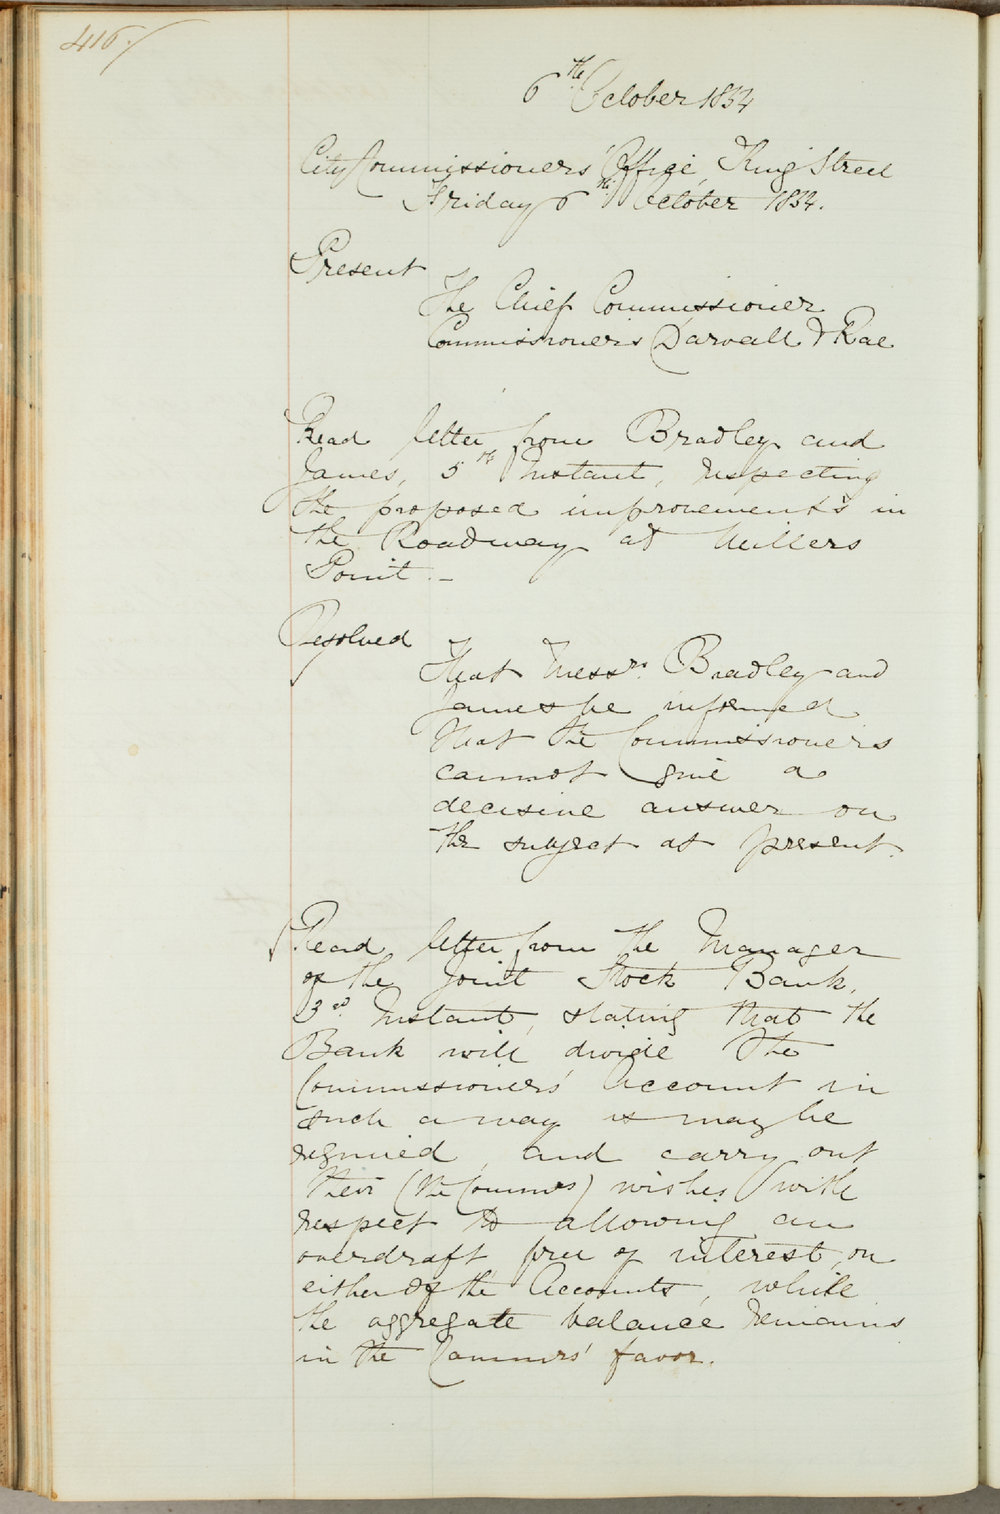 416./
6th October 1854
City Commissioners' Office, King Street
Friday 6th October 1854.
Present
The Chief Commissioner
Commissioners Darvall & Rae
Read letter from Bradley and
James, 5th Instant, respecting
the proposed improvements in
the Roadway at Millers
Point. –
Resolved
That Messrs. Bradley and
James be informed
that the Commissioners
cannot give a
decisive answer on
the subject at present.
Read letter from the Manager
of the Joint Stock Bank,
3rd. Instant, stating that the
Bank will divide the
Commissioners' Account in
such a way as may be
required, and carry out
their (the Commrs) wishes with
respect to allowing an
overdraft free of interest, on
either of the Accounts, while
the aggregate balance remains
in the Commrs' favor.